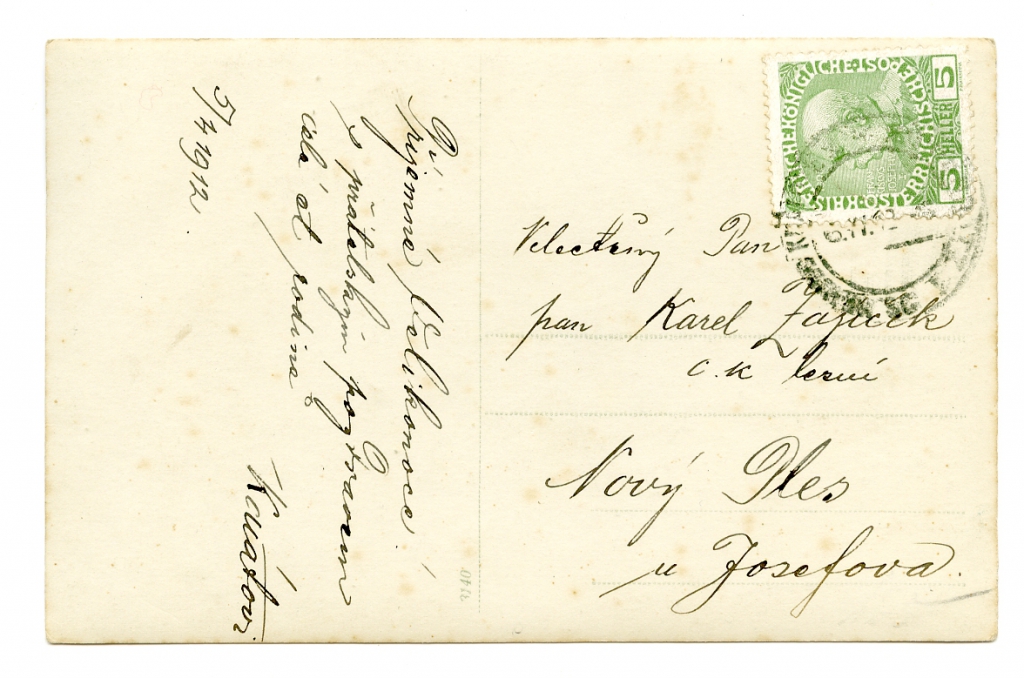 5/4 1912
Příjemné Velikonoce
s přátelským pozdravem
celé ct rodině
Kovářovi
Velectěný Pan
pan Karel Zajíček
c. k lesní
Nový Ples
u Josefova.
KAIS·KÖNIGLICHE ÖSTERREICHISCHE POST
5 HELLER 5